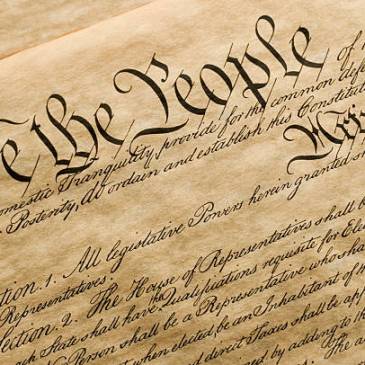 e the People of
omestic Tranquility, provide for the common defe
Posterity, do ordain and establish this Constitut
Section. 1. All legislative Powers herein granted s
Representatives.
Section. 2. The House of Representatives shall b
ach State shall have the Qualifications requisite for Ele
No Person shall be a Representative who sha
when elected, be an Inhabitant of th
and direct Taxes shall be app
by adding to th